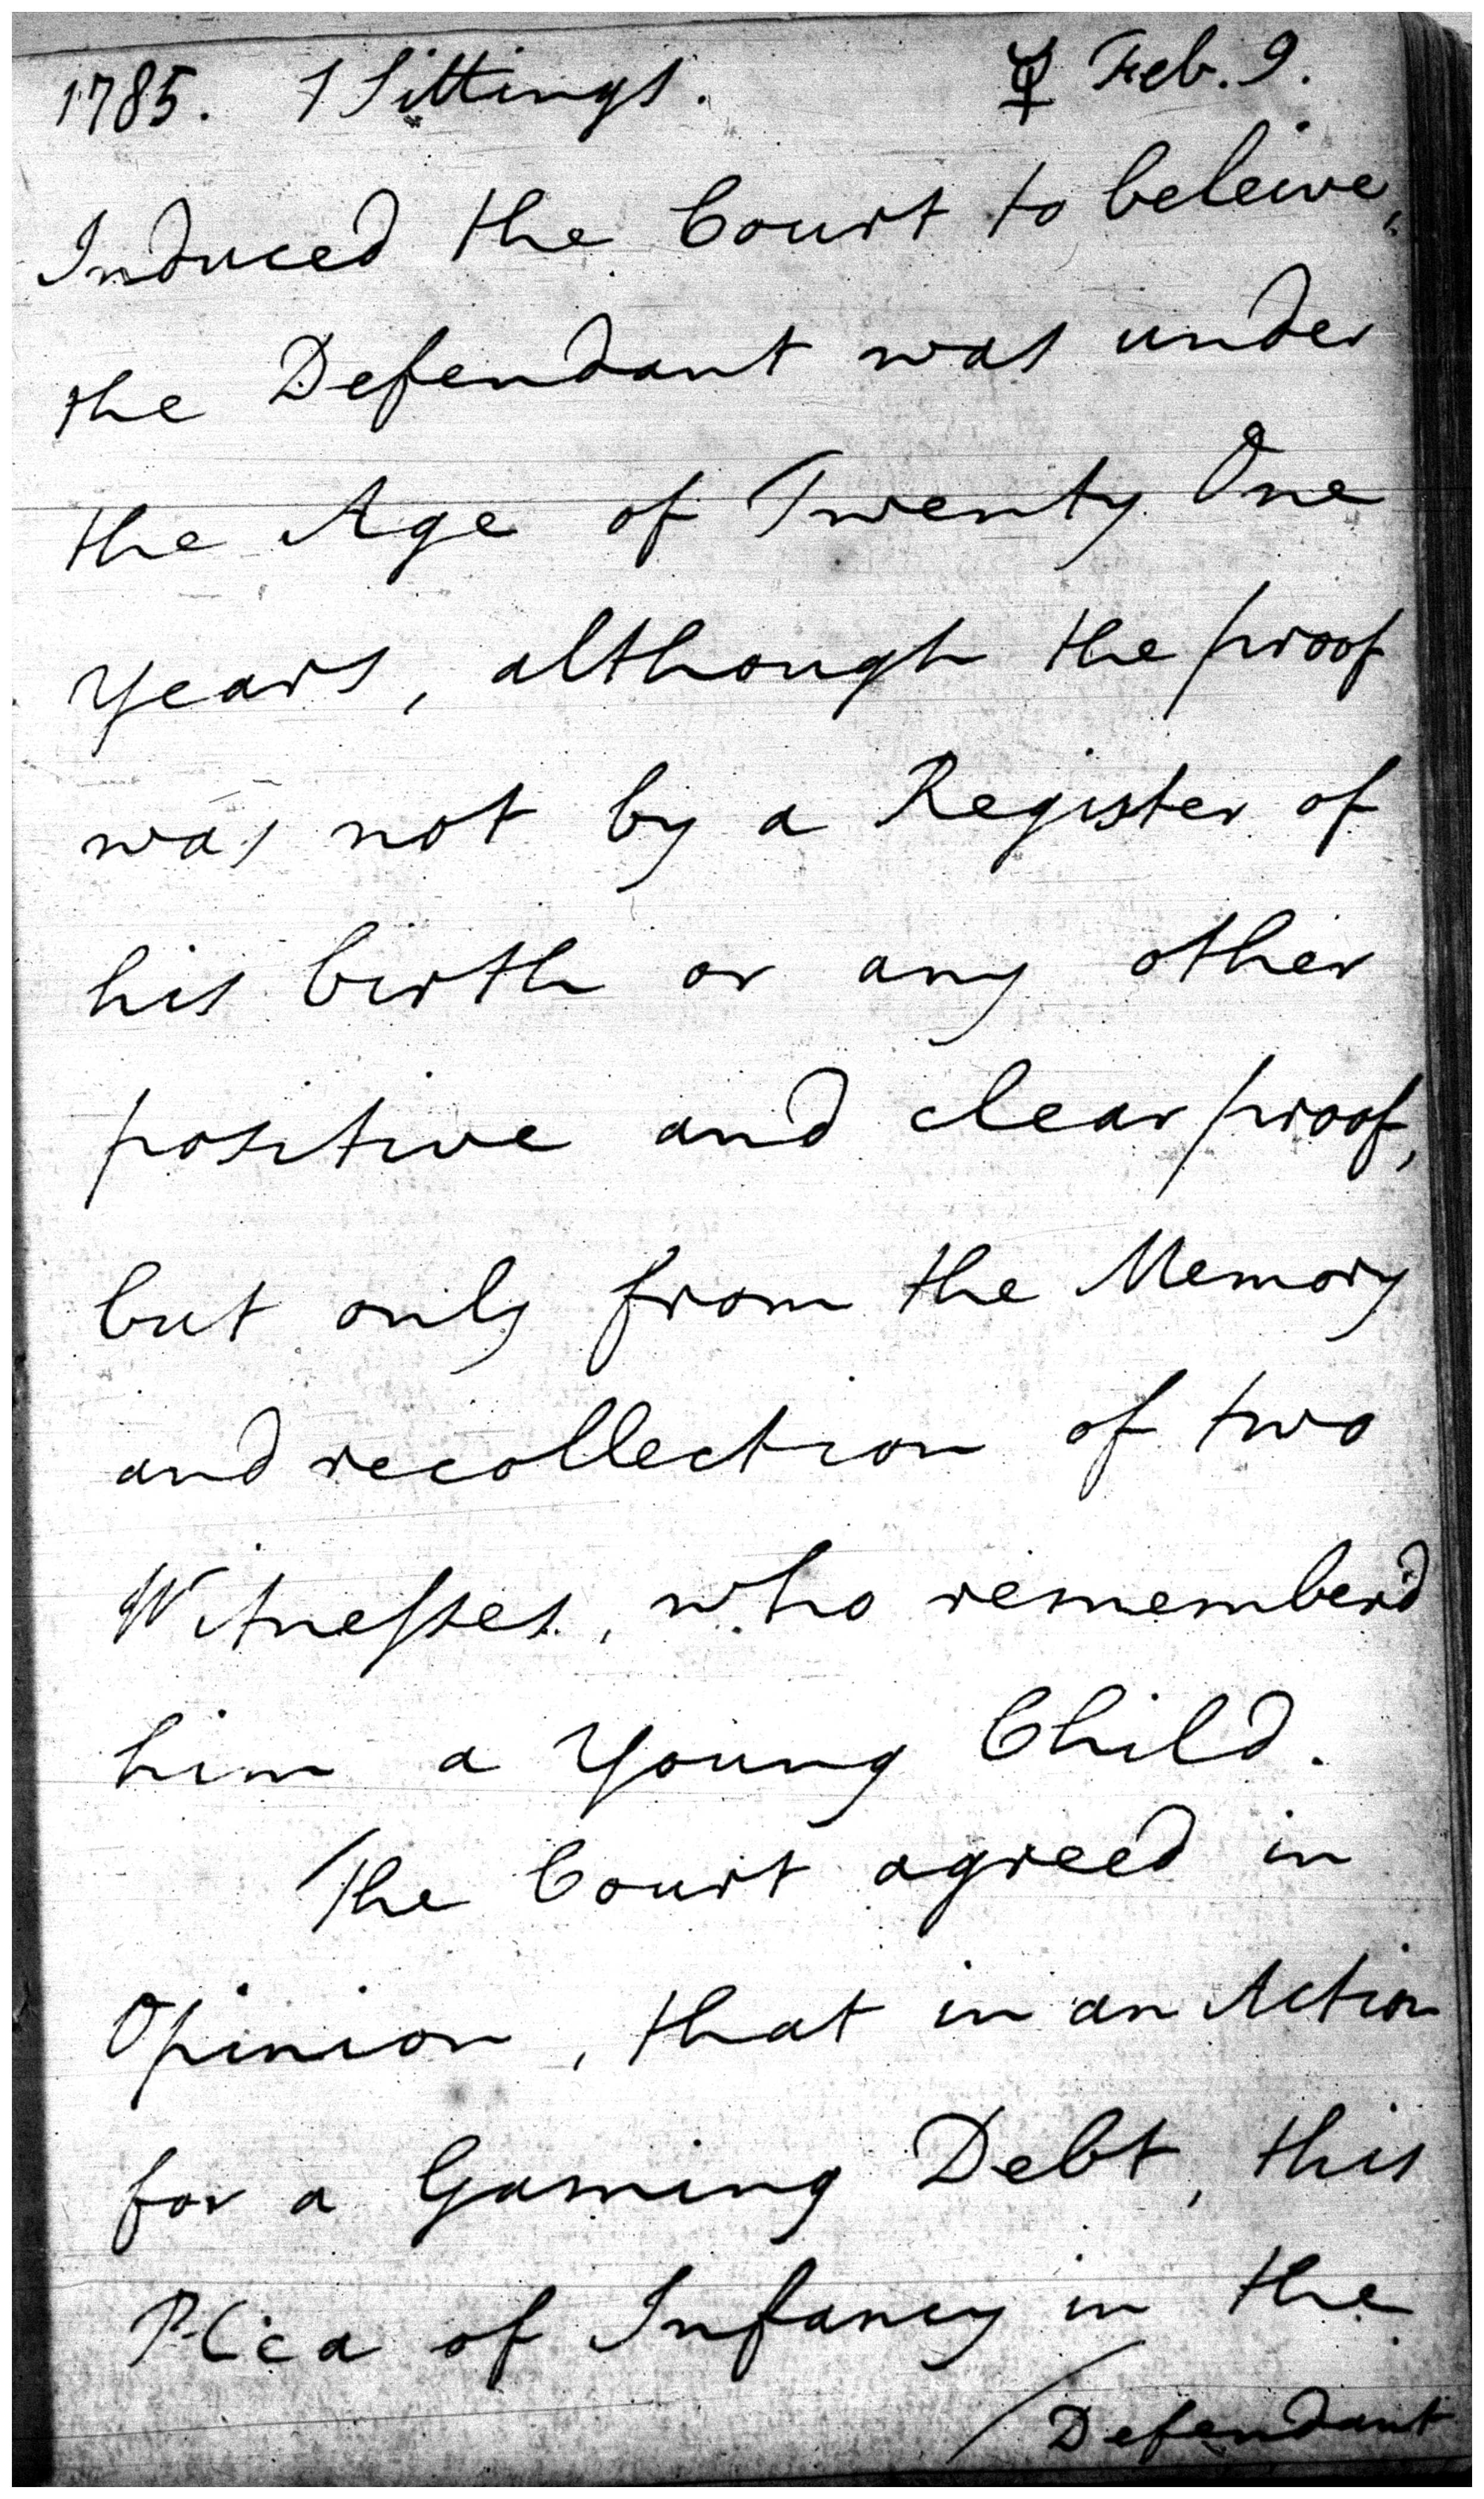 1785. 1 Sittings. ☿ Feb. 9.
Induced the Court to beleive,
the Defendant was under
the Age of Twenty One
Years, although the proof
was not by a Register of
his birth or any other
positive and clear proof,
but only from the Memory
and recollection of two
Witnesses, who rememberd
him a Young Child.
The Court agreed in
Opinion, that in an Action
for a Gaming Debt, this
Plea of Infancy in the
/ Defendant